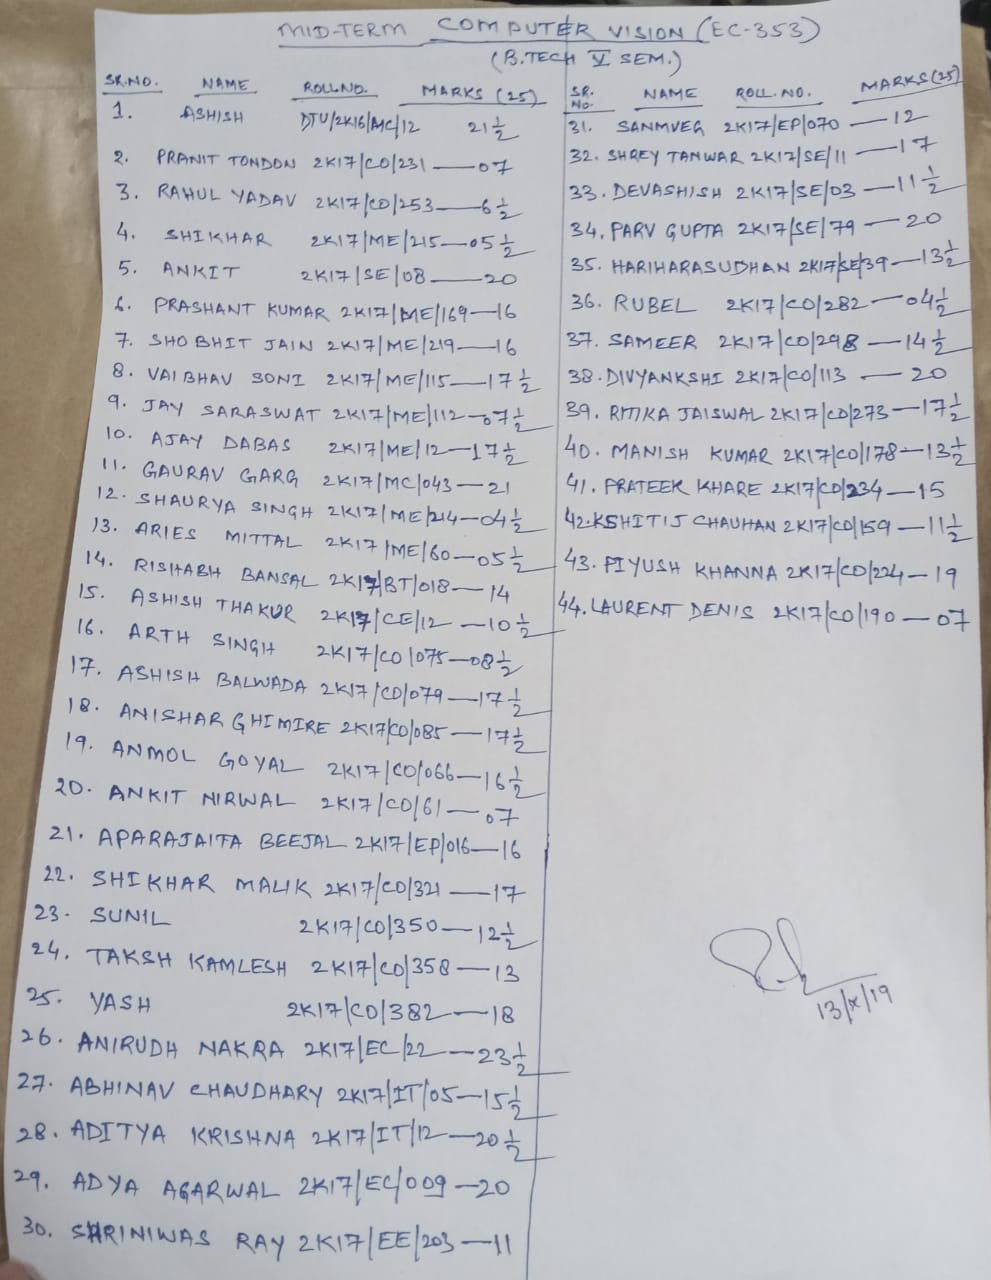 MID-TERM COMPUTER VISION (EC-353)
(B.TECH V SEM.)
SR.NO. NAME ROLLNO. MARKS (25)
1. ASHISH DTU/2K16/MC/12 21 1/2
2. PRANIT TONDON 2K17/CO/231 — 07
3. RAHUL YADAV 2K17/CO/253 — 6 1/2
4. SHIKHAR 2K17/ME/215 — 05 1/2
5. ANKIT 2K17/SE/08 — 20
6. PRASHANT KUMAR 2K17/ME/169 — 16
7. SHOBHIT JAIN 2K17/ME/219 — 16
8. VAIBHAV SONI 2K17/ME/115 — 17 1/2
9. JAY SARASWAT 2K17/ME/112 — 07 1/2
10. AJAY DABAS 2K17/ME/12 — 17 1/2
11. GAURAV GARG 2K17/MC/043 — 21
12. SHAURYA SINGH 2K17/ME/214 — 04 1/2
13. ARIES MITTAL 2K17/ME/60 — 05 1/2
14. RISHABH BANSAL 2K17/BT/018 — 14
15. ASHISH THAKUR 2K17/CE/12 — 10 1/2
16. ARTH SINGH 2K17/CO/075 — 08 1/2
17. ASHISH BALWADA 2K17/CO/079 — 17 1/2
18. ANISHAR GHIMIRE 2K17/CO/085 — 17 1/2
19. ANMOL GOYAL 2K17/CO/066 — 16 1/2
20. ANKIT NIRWAL 2K17/CO/61 — 07
21. APARAJAITA BEEJAL 2K17/EP/016 — 16
22. SHIKHAR MALIK 2K17/CO/321 — 17
23. SUNIL 2K17/CO/350 — 12 1/2
24. TAKSH KAMLESH 2K17/CO/358 — 13
25. YASH 2K17/CO/382 — 18
26. ANIRUDH NAKRA 2K17/EC/22 — 23 1/2
27. ABHINAV CHAUDHARY 2K17/IT/05 — 15 1/2
28. ADITYA KRISHNA 2K17/IT/12 — 20 1/2
29. ADYA AGARWAL 2K17/EC/009 — 20
30. SHRINIWAS RAY 2K17/EE/203 — 11
SR. NO. NAME ROLL.NO. MARKS (25)
31. SANMVEG 2K17/EP/070 — 12
32. SHREY TANWAR 2K17/SE/11 — 17
33. DEVASHISH 2K17/SE/03 — 11 1/2
34. PARV GUPTA 2K17/SE/79 — 20
35. HARIHARASUDHAN 2K17/SE/39 — 13 1/2
36. RUBEL 2K17/CO/282 — 04 1/2
37. SAMEER 2K17/CO/298 — 14 1/2
38. DIVYANKSHI 2K17/CO/113 — 20
39. RITIKA JAISWAL 2K17/CO/273 — 17 1/2
40. MANISH KUMAR 2K17/CO/178 — 13 1/2
41. PRATEEK KHARE 2K17/CO/234 — 15
42. KSHITIJ CHAUHAN 2K17/CO/159 — 11 1/2
43. PIYUSH KHANNA 2K17/CO/224 — 19
44. LAURENT DENIS 2K17/CO/190 — 07
13/X/19